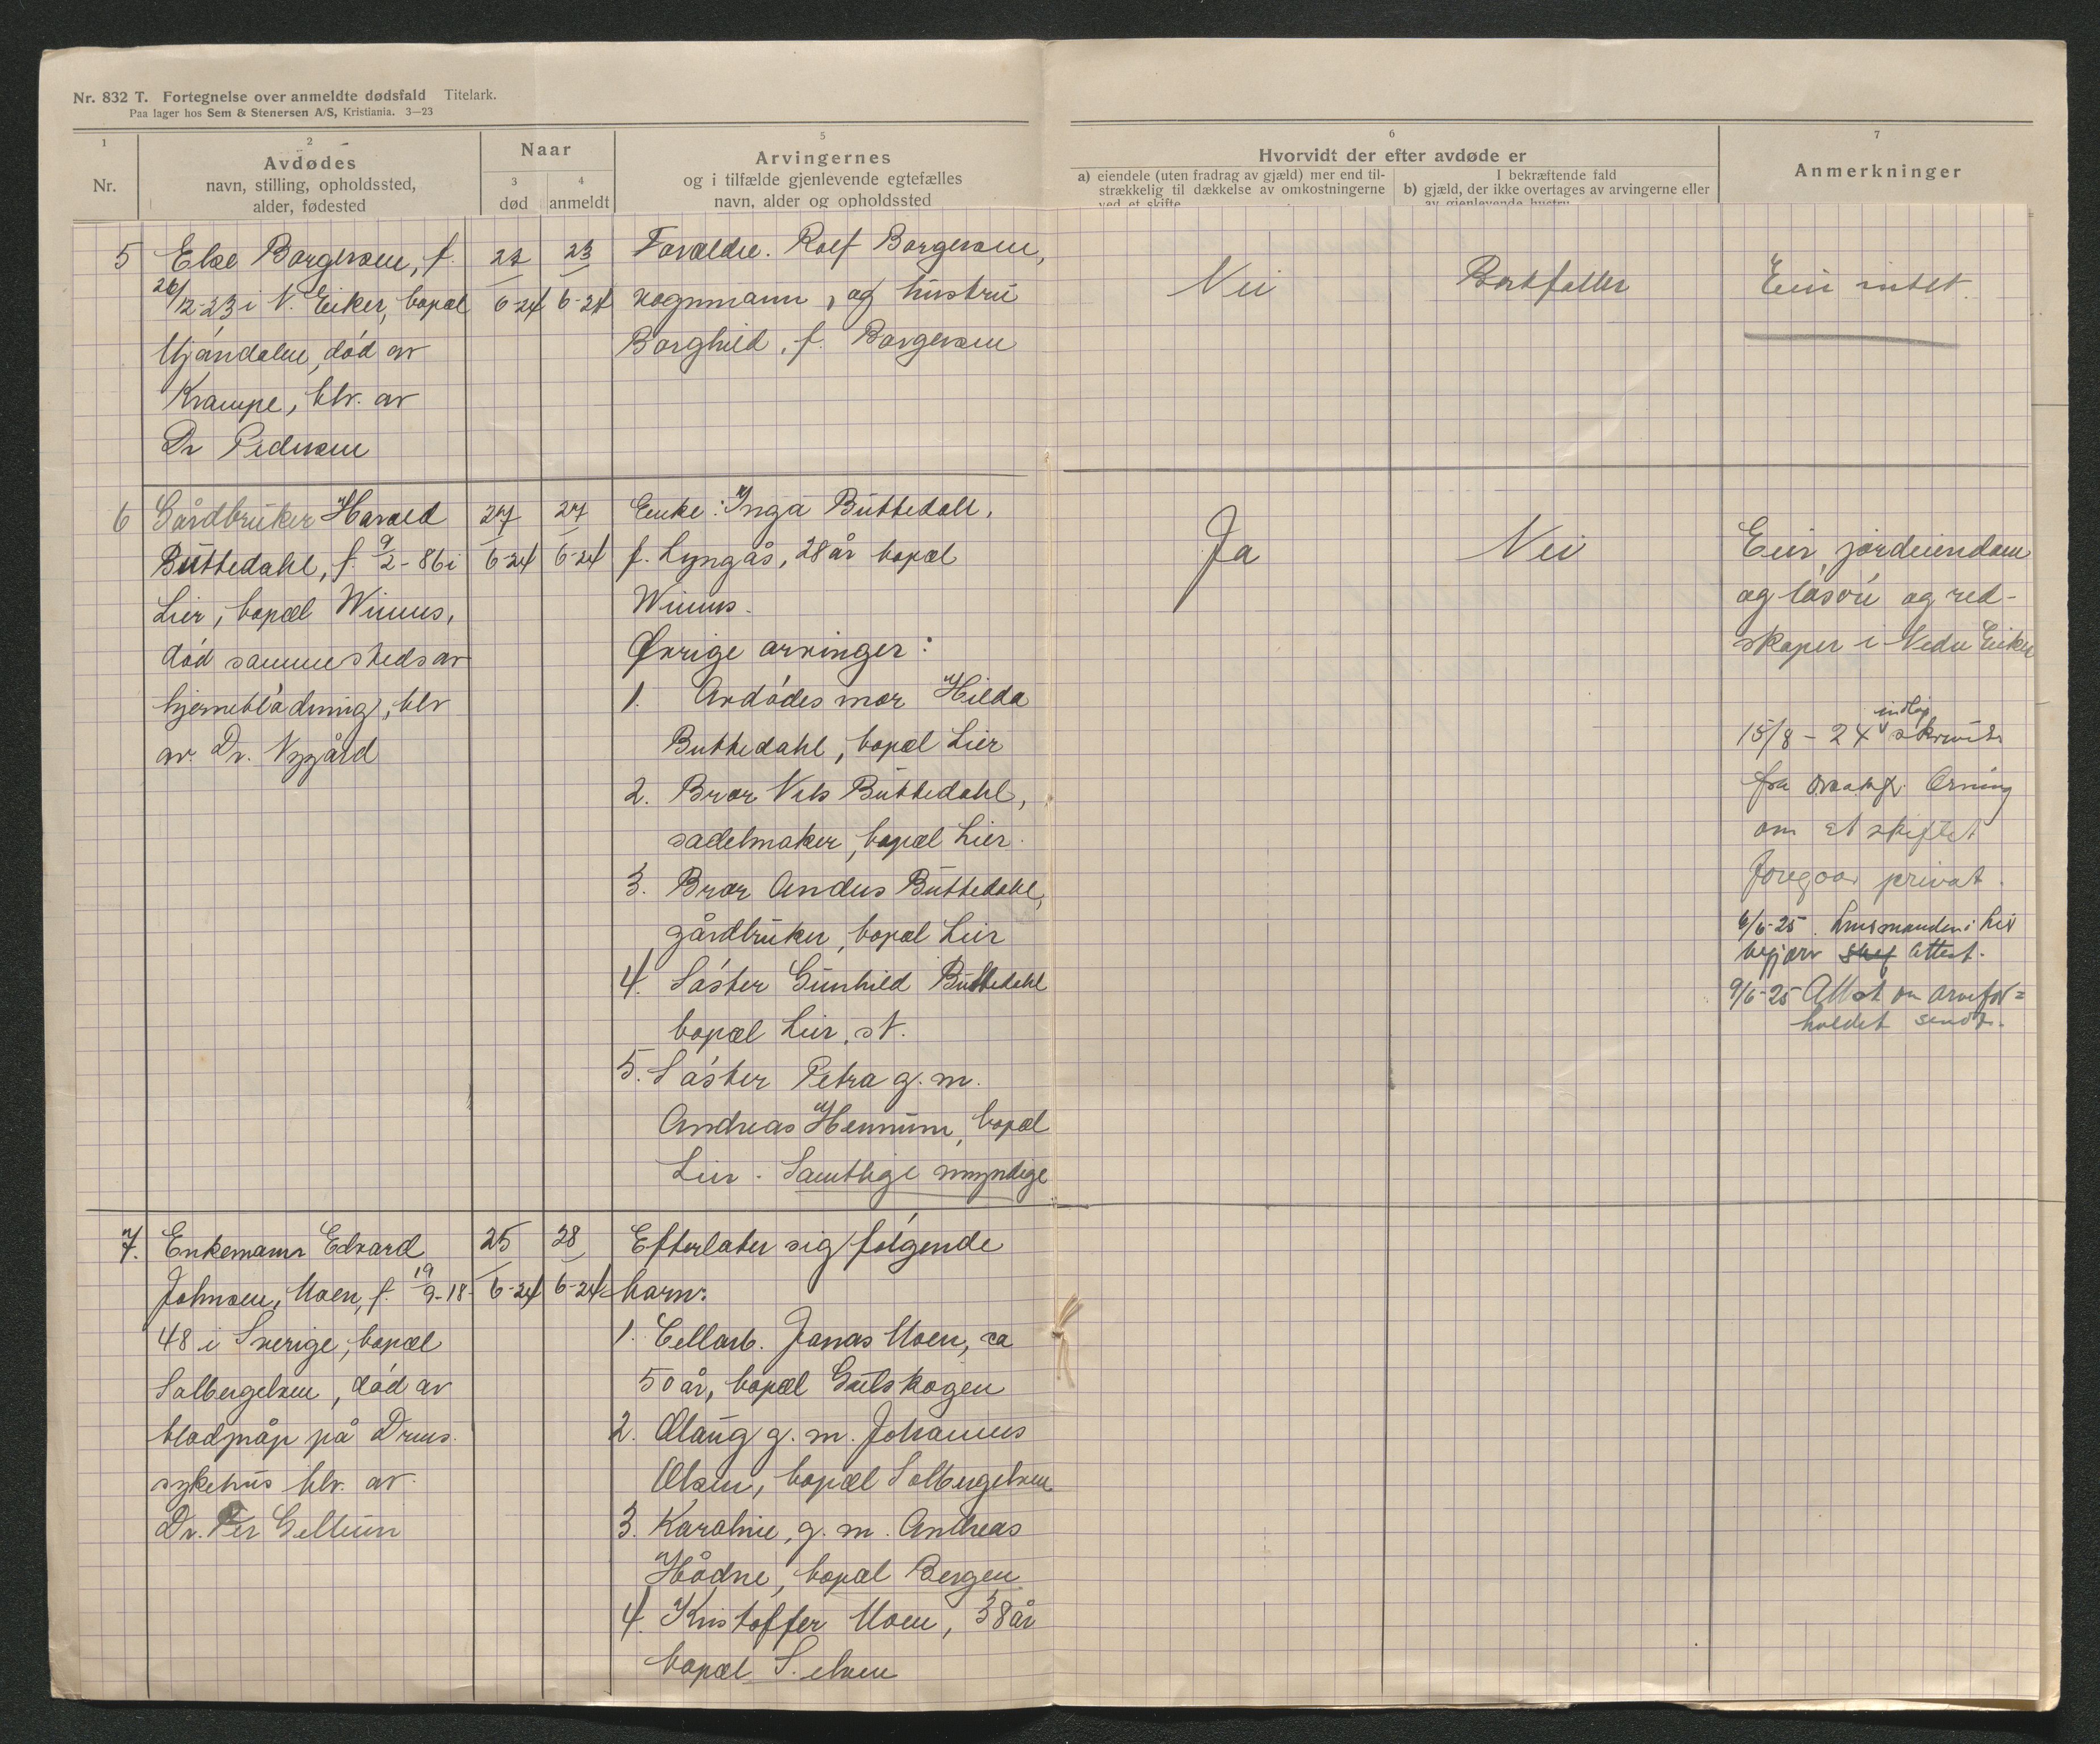 Nr. 832 T. Fortegnelse over anmeldte dødsfald Titelark.
Paa lager hos Sem & Stenersen A/S, Kristiania. 3—23
1
2
Avdødes
navn, stilling, opholdssted,
alder, fødested
Nr.
Naar
3
død
4
anmeldt
5
Arvingernes
og i tilfælde gjenlevende egtefælles
navn, alder og opholdssted
6
Hvorvidt der efter avdøde er
a) eiendele (uten fradrag av gjæld) mer end til-
strækkelig til dækkelse av omkostningerne
ved et skifte
I bekræftende fald
b) gjæld, der ikke overtages av arvingerne eller
av gjenlevende hustru
7
Anmerkninger
5
Else Borgersen, f.
26/12-23 i N. Eiker, bopæl
Mjøndalen, død av
Krampe, blv. av
Dr Pedersen
6-24
23
6-24
Forældre. Rolf Borgersen,
vognmann, og hustru
Borghild, f. Borgersen
Nei
Bortfaller
Eier intet.
6
Gårdbruker Harald
Buttedahl, f. 9/2-86 i
Lier, bopæl Winnes,
død sammesteds av
hjerneblødning, blv
av. Dr. Nygård
27
6-24
27
6-24
Enke: Inga Buttedall,
f. Lyngås, 28 år bopæl
Winnes.
Øvrige arvinger:
1. Avdødes mor Hilda
Buttedahl, bopæl Lier
2. Bror Nels Buttedahl,
sadelmaker, bopæl Lier.
3. Bror Anders Buttedahl,
gårdbruker, bopæl Lier
4. Søster Gunhild Buttedahl
bopæl Lier, st.
5. Søster Petra g. m.
Andreas Hennum, bopæl
Lier. Samtlige myndige
Ja
Nei
Eier jordeiendom
og løsøre og red-
skaper i Nedre Eiker
15/8-24 indløp skrivelse
fra Ørning
om at skiftet
foregaar privat.
6/6-25. Lensmanden i Lier
begjærer attest.
9/6-25 Attest om arvefor=
holdet sendt.
7.
Enkemann Edvard
Johnsen, Moen, f. 19/9-18-
48 i Sverige, bopæl
Solbergelven, død av
blodpråp på Drms.
sykehus blv. av
Dr. Per Gellein
25
6-24
28
6-24
Efterlater sig følgende
barn:
1. Cellarb. Jonas Moen, ca
50 år, bopæl Gulskogen
2. Olaug g. m. Johannes
Olsen, bopæl Solbergelven
3. Karoline, g. m. Andreas
Hådne, bopæl Bergen
4. Kristoffer Moen, 38 år
bopæl S. elven